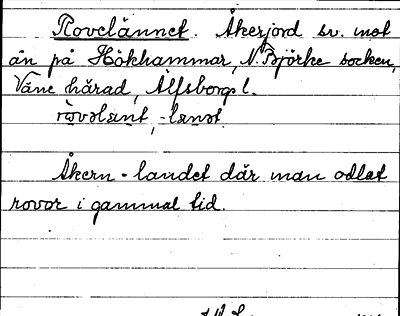 Rovelännet. Åkerjord sv. mot
ån på Hökhammar, N. Björke socken,
Väne härad, Älfsborgs l.
rovelant, -lanet.
Åkern - landet där man odlat
rovor i gammal tid.